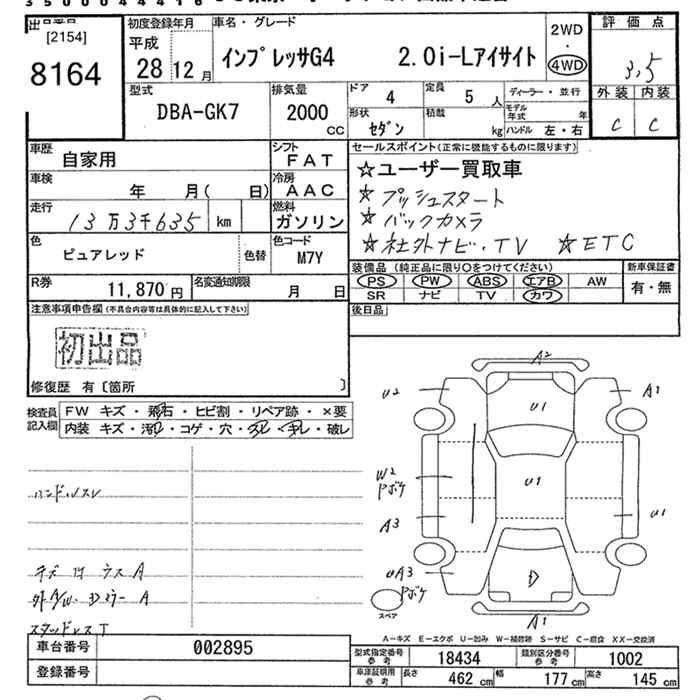 [2154]
8164
初度登録年月
平成
28 12 月
車名・グレード
インプレッサG4 2.0i-Lアイサイト
2WD
・
4WD
評価点
3.5
外装 内装
C C
型式
DBA-GK7
排気量
2000
CC
ドア
4
定員
5 人
形状
セダン
積載
kg
ディーラー・並行
モデル
年式 年
ハンドル 左・右
車歴
自家用
シフト
FAT
車検
年 月( 日)
冷房
AAC
走行
13万3千635 km
燃料
ガソリン
色
ピュアレッド
色替
色コード
M7Y
R券
11,870円
名変通知期限
月 日
セールスポイント(正常に機能するものに限ります)
☆ユーザー買取車
☆プッシュスタート
☆バックカメラ
☆社外ナビ・TV ☆ETC
装備品(純正品に限り○をつけてください)
PS PW ABS エアB AW
SR ナビ TV カワ
新車保証書
有・無
後日品
注意事項申告欄(不具合内容等は具体的に記入して下さい)
初出品
修復歴 有〔箇所 〕
検査員
記入欄
FW キズ・飛石・ヒビ割・リペア跡・×要
内装 キズ・汚れ・コゲ・穴・スレ・キレ・破レ
ハンドルスレ
キズ 凹 ウス A
スタッドレス T
A2
U2
A1
U1
W2
ヤボケ
U1
A3
U1
UA3
ヤボケ
D
スペア
A1
A−キズ E−エクボ U−凹み W−補修跡 S−サビ C−腐食 XX−交換済
車台番号
002895
登録番号
型式指定番号
参考
18434
類別区分番号
参考
1002
車庫証明用
参考
長さ
462 cm
幅
177 cm
高さ
145 cm